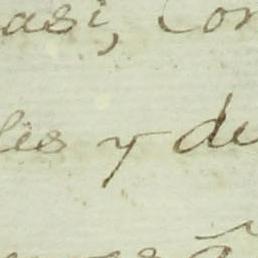 asi, Con
les y de